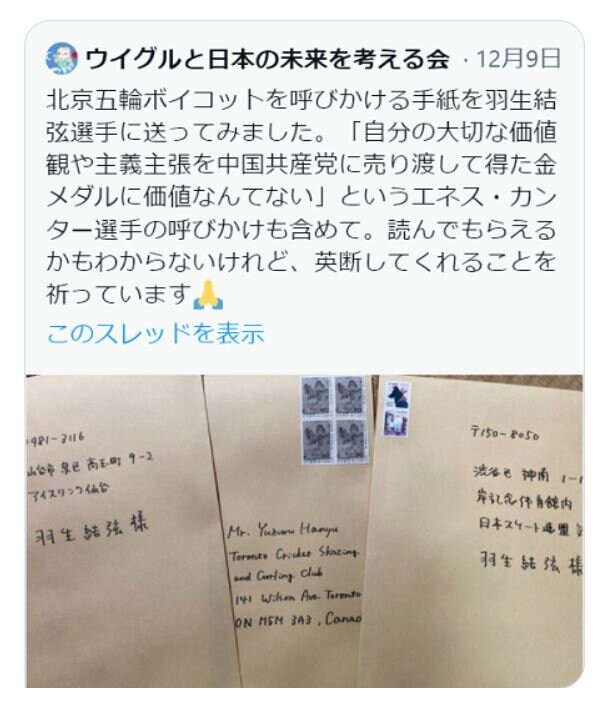 ウイグルと日本の未来を考える会 · 12月9日
北京五輪ボイコットを呼びかける手紙を羽生結
弦選手に送ってみました。「自分の大切な価値
観や主義主張を中国共産党に売り渡して得た金
メダルに価値なんてない」というエネス・カン
ター選手の呼びかけも含めて。読んでもらえる
かもわからないけれど、英断してくれることを
祈っています🙏
このスレッドを表示
981-3116
仙台市 泉区 高玉町 9-2
アイスリンク仙台
羽生結弦様
Mr. Yuzuru Hanyu
Toronto Cricket Skating
and Curling Club
141 Wilson Ave. Toronto
ON M5M 3A3, Canad
〒150-8050
渋谷区 神南 1-1
岸記念体育館内
日本スケート連盟
羽生結弦様